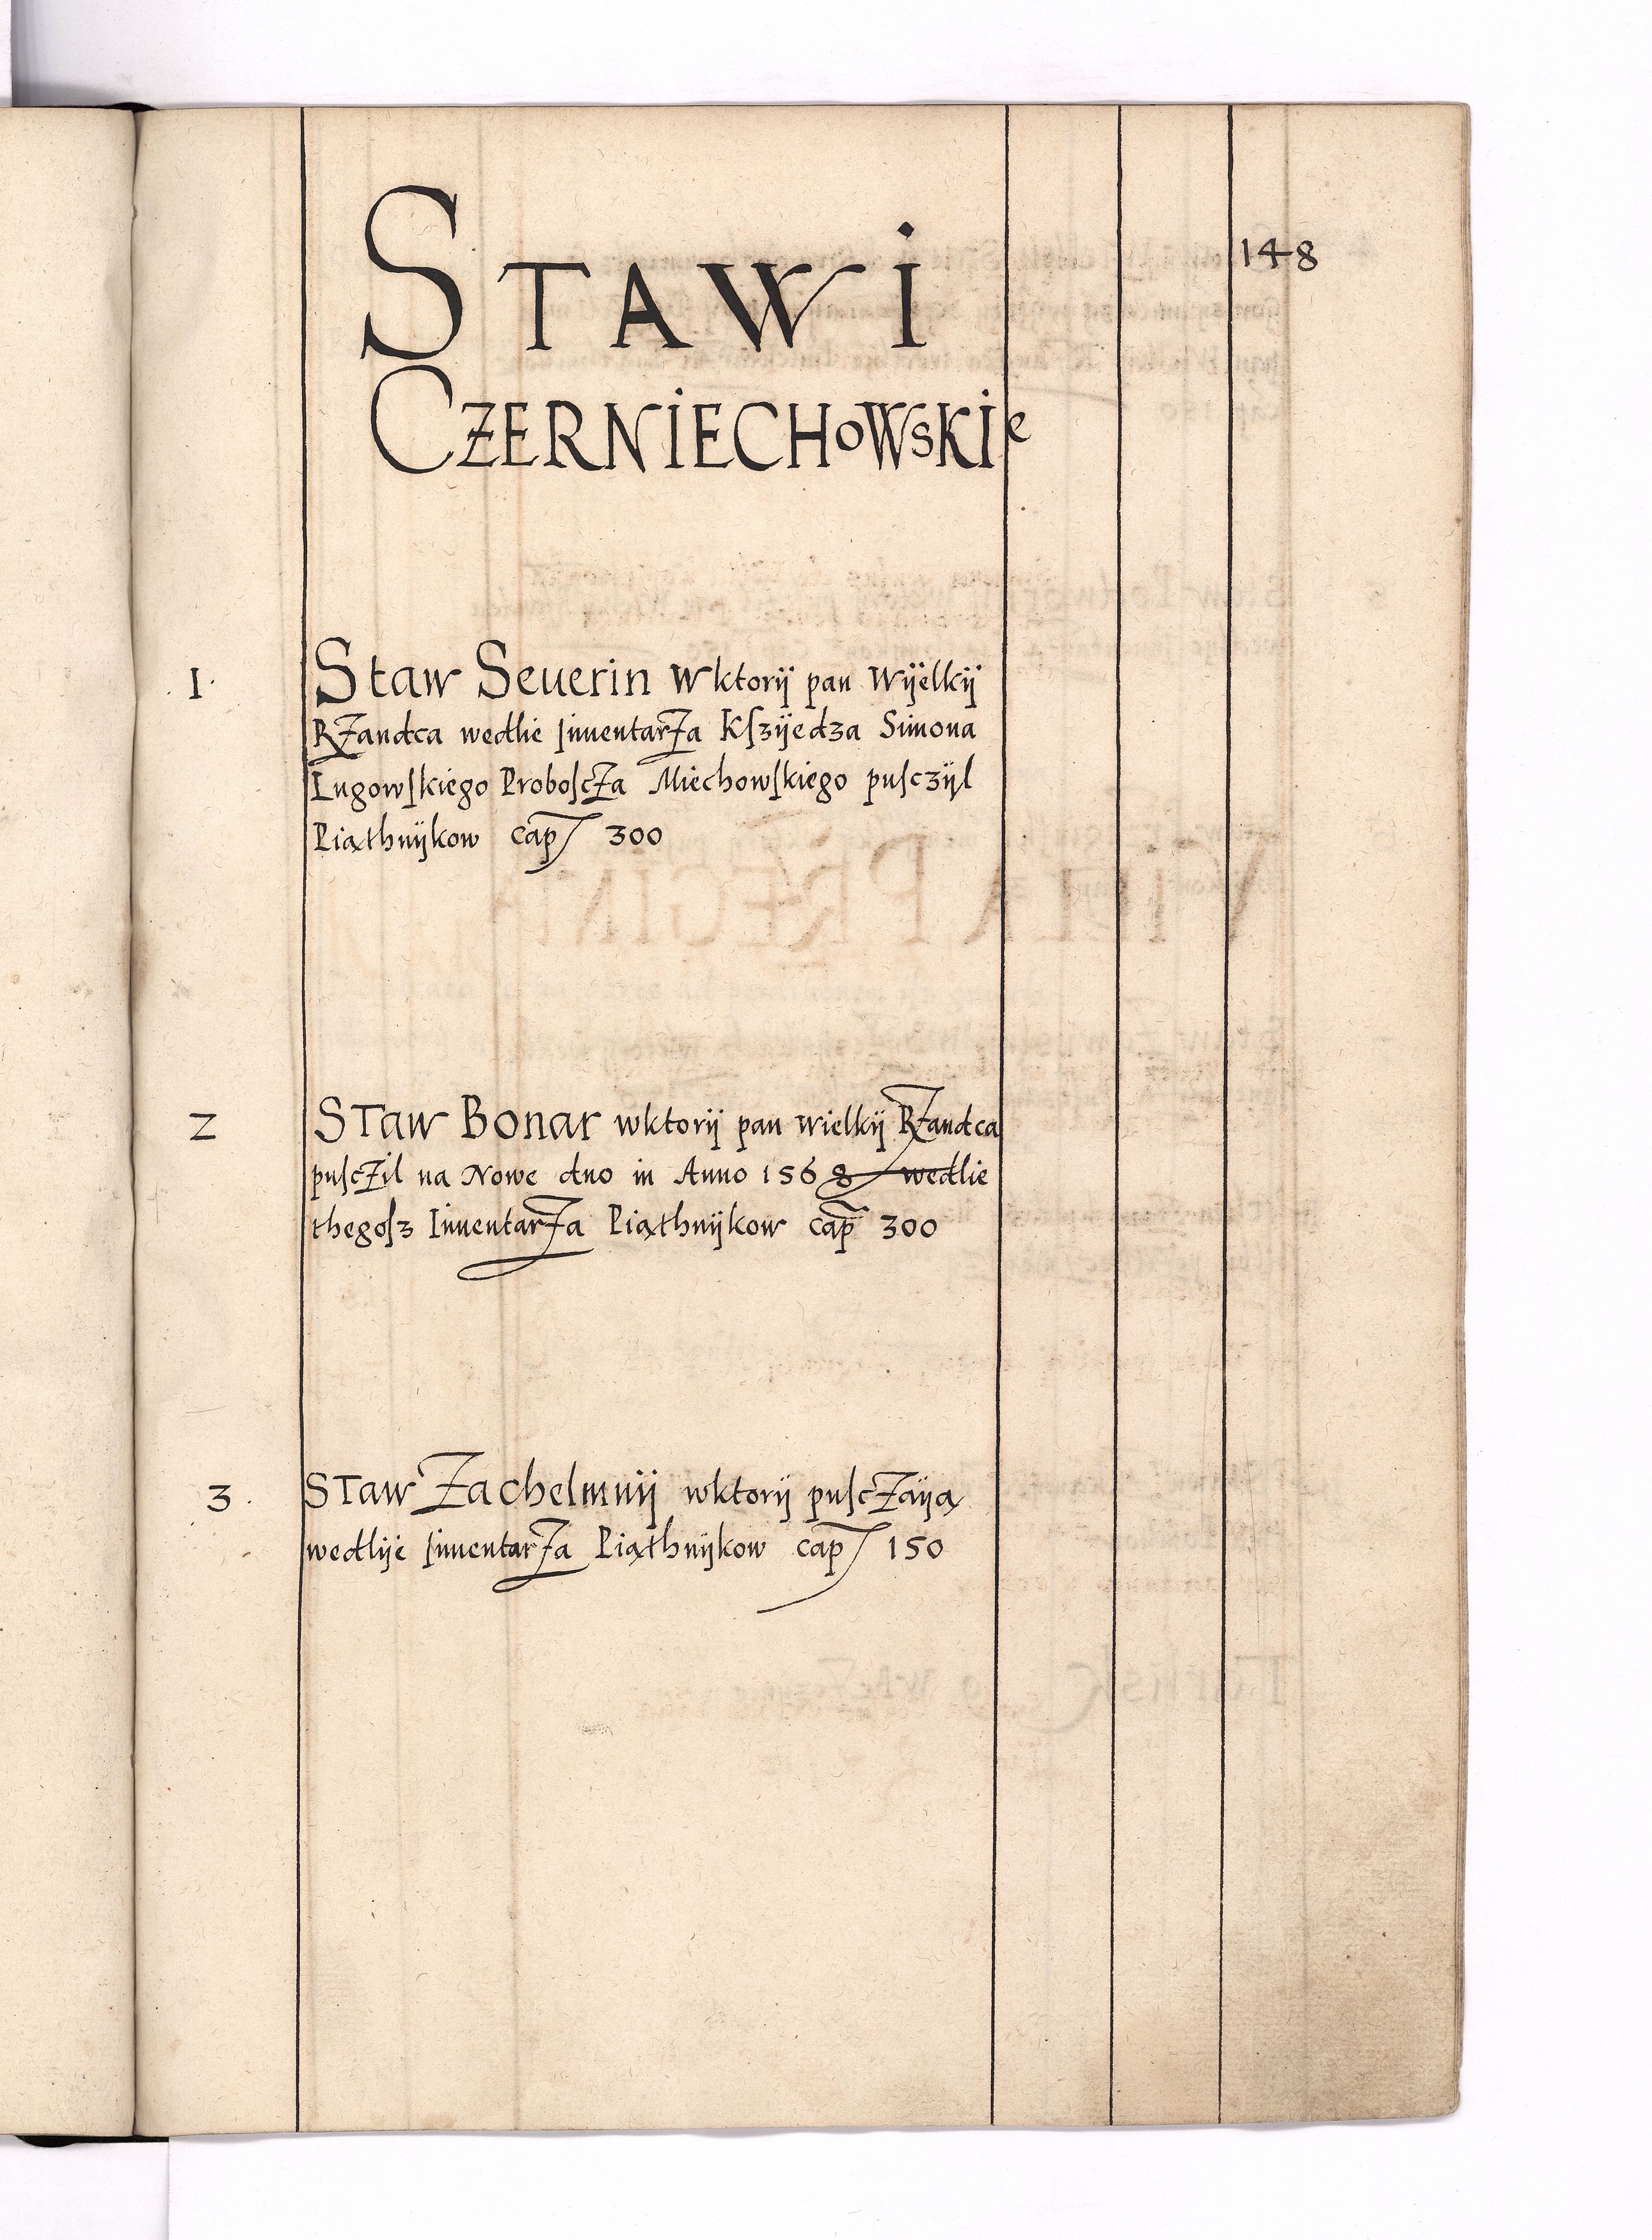 148
STAWI
CZERNIECHOWSKIe
1. Staw Seuerin wktorÿ pan WÿelkiJ
RZandca wedlie InuentarZa Kſzÿedza Simona
Lugowſkiego ProboſcZa Miechowſkiego puſczÿl
Piąthnÿkow cap 300
2 STaw Bonar wktorÿ pan wielkÿ RZandca
puſcZil na Nowe dno in Anno 1568 wedlie
thegoſz InuentarZa Piąthnÿkow cap 300
3. STaw Zachelmnÿ wktorÿ puſcZaÿą
wedlÿe InuentarZa Piąthnÿkow cap 150